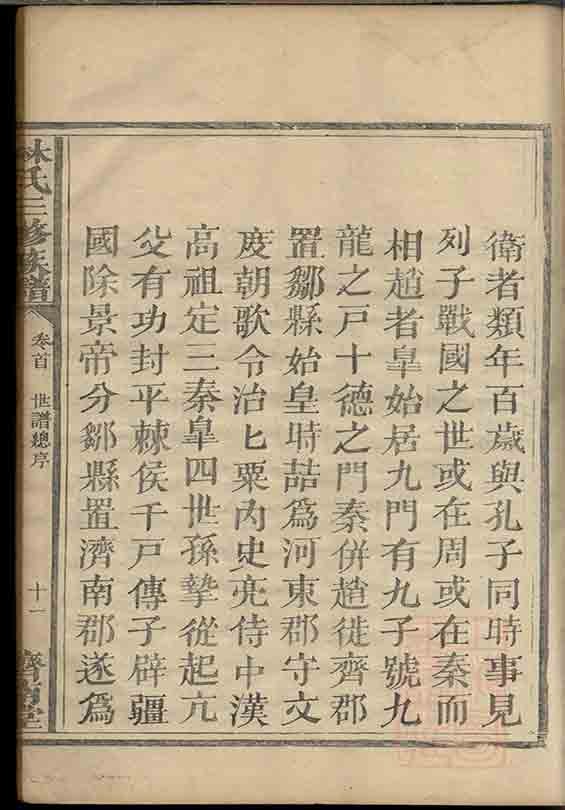 衛者類年百歲與孔子同時事見
列子戰國之世或在周或在秦而
相趙者皐始居九門有九子號九
龍之戸十德之門秦併趙徙齊郡
置鄒縣始皇時喆爲河東郡守文
度朝歌令治匕粟内史亮侍中漢
高祖定三秦皐四世孫摯從起亢
父有功封平棘侯千戸傳子辟疆
國除景帝分鄒縣置濟南郡遂爲
林氏三修族譜
卷首 世譜總序
十一